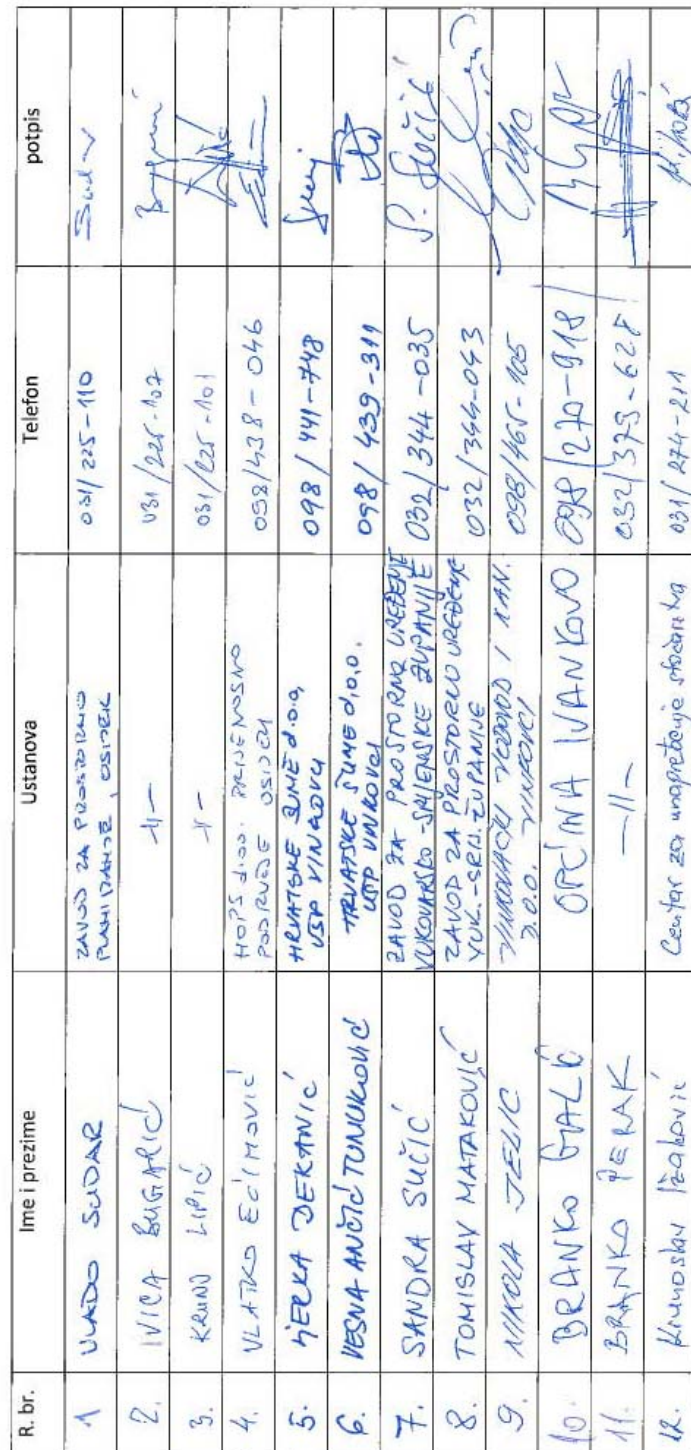 R. br. Ime i prezime Ustanova Telefon potpis
1 VLADO SUDAR ZAVOD ZA PROSTORNO
PLANIRANJE, OSIJEK 031/225-110 Sudar
2. IVICA BUGARIĆ -||- 031/225-107
3. KRUNO LIPIĆ -||- 031/225-101
4. VLATKO EĆIMOVIĆ HOPS d.o.o. PRIJENOSNO
PODRUČJE OSIJEK 098/438-046
5. JERKA DEKANIĆ HRVATSKE ŠUME d.o.o,
UŠP VINKOVCI 098/441-748
6. VESNA ANČIĆ TUNUKOVIĆ HRVATSKE ŠUME d.o.o.
UŠP VINKOVCI 098/439-311
7. SANDRA SUČIĆ ZAVOD ZA PROSTORNO UREĐENJE
VUKOVARSKO-SRIJEMSKE ŽUPANIJE 032/344-035 S. Sučić
8. TOMISLAV MATAKOVIĆ ZAVOD ZA PROSTORNO UREĐENJE
VUK.-SRIJ. ŽUPANIJE 032/344-043
9. NIKOLA JELIĆ VINKOVAČKI VODOVOD I KAN.
D.O.O. VINKOVCI 098/465-105
10. BRANKO GALIĆ OPĆINA IVANKOVO 098/270-918
11. BRANKO PERAK -||- 032/379-628
12. Krunoslav Centar za unapređenje stočarstva 031/274-211